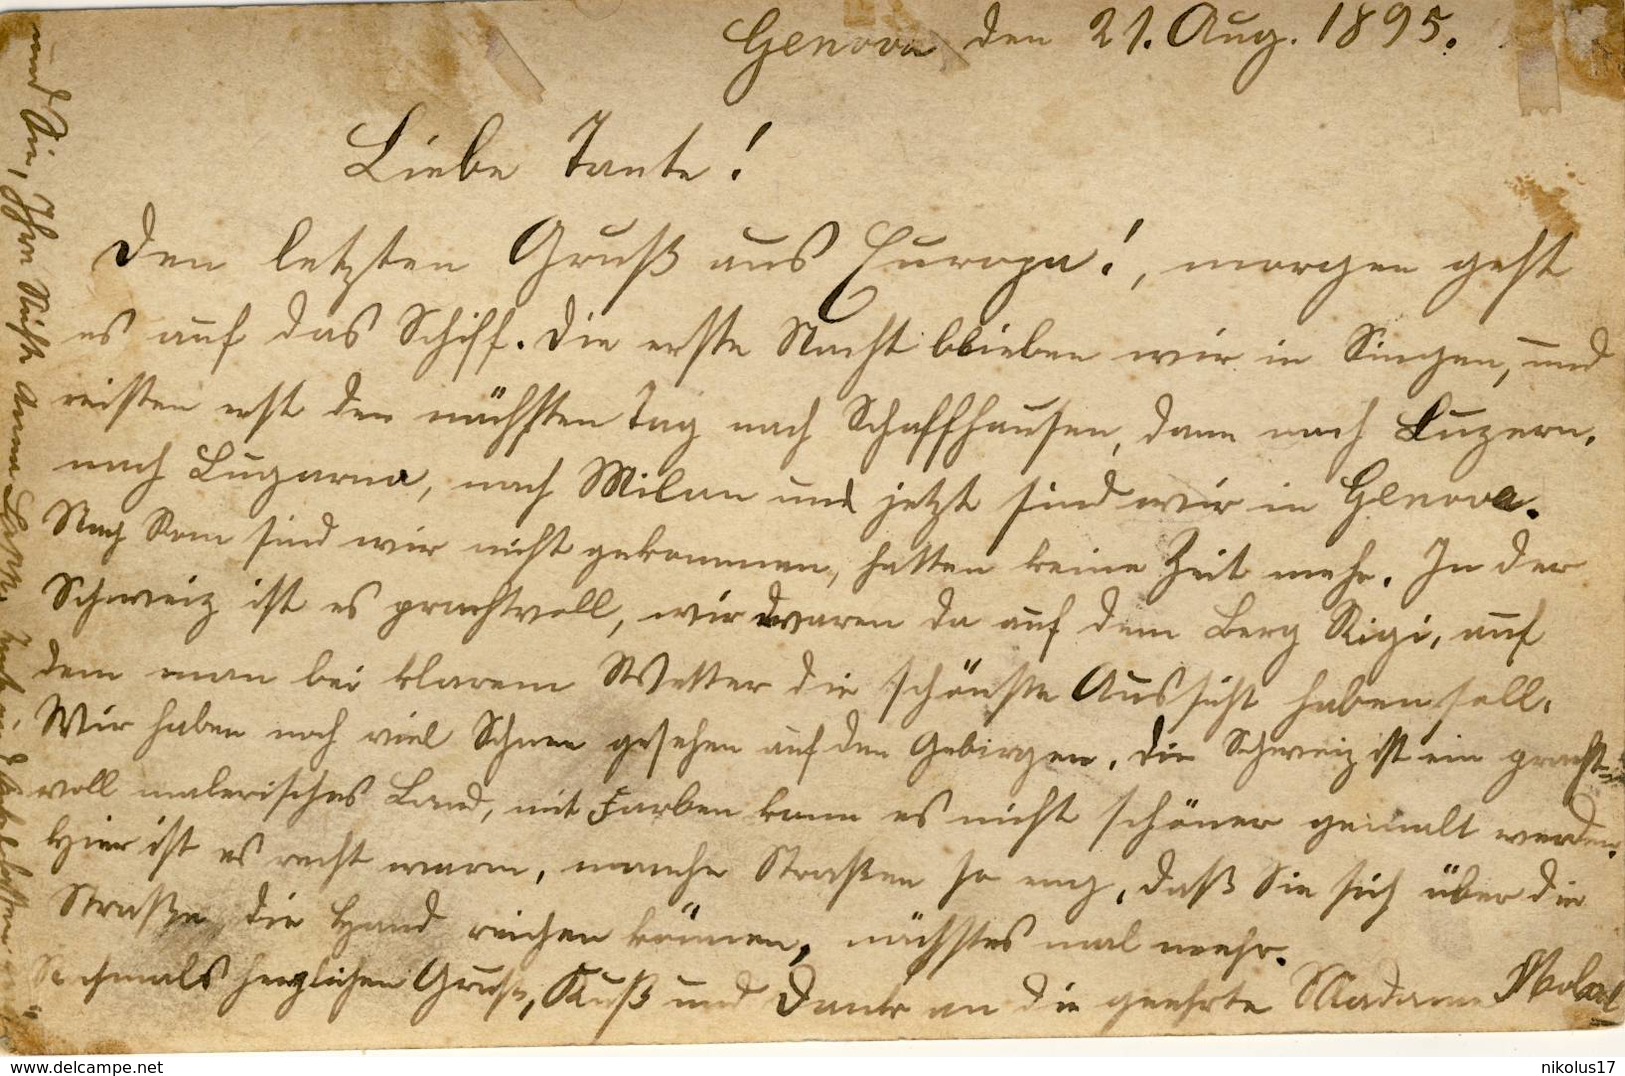 Genova den 21. Aug. 1895.
Liebe Tante!
Den letzten Gruß aus Europa!, morgen geht
es auf das Schiff. Die erste Nacht blieben wir in Singen, und
reisten erst den nächsten Tag nach Schaffhausen, dann nach Luzern,
nach Lugarna, nach Milan und jetzt sind wir in Genova.
Nach Rom sind wir nicht gekommen, hatten keine Zeit mehr. In der
Schweiz ist es prachtvoll, wir waren da auf dem Berg Rigi, auf
dem man bei klarem Wetter die schönste Aussicht haben soll.
Wir haben noch viel Schnee gesehen auf den Gebirgen. Die Schweiz ist ein pracht-
voll malerisches Land, mit Farben kann es nicht schöner gemalt werden.
Hier ist es recht warm, manche Straßen so eng, daß Sie sich über die
Straße die Hand reichen können, nächstes mal mehr.
Nochmals herzlichen Gruß, Kuß und Dank an die geehrte Madame
und Sie, Ihre Nichte Anna
nikolus17
www.delcampe.net